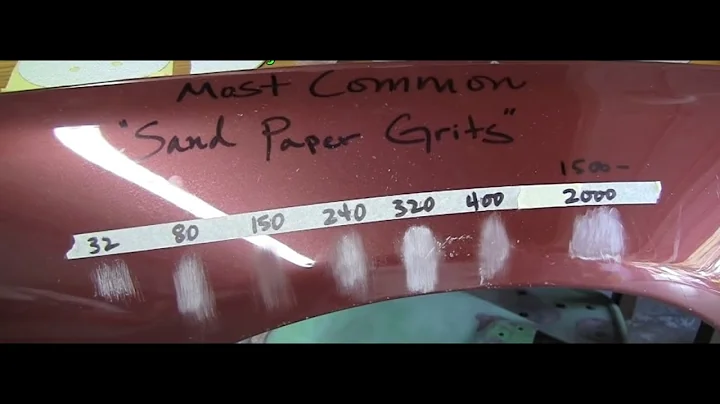 Most Common
"Sand Paper Grits"
1500-
32 80 150 240 320 400 2000